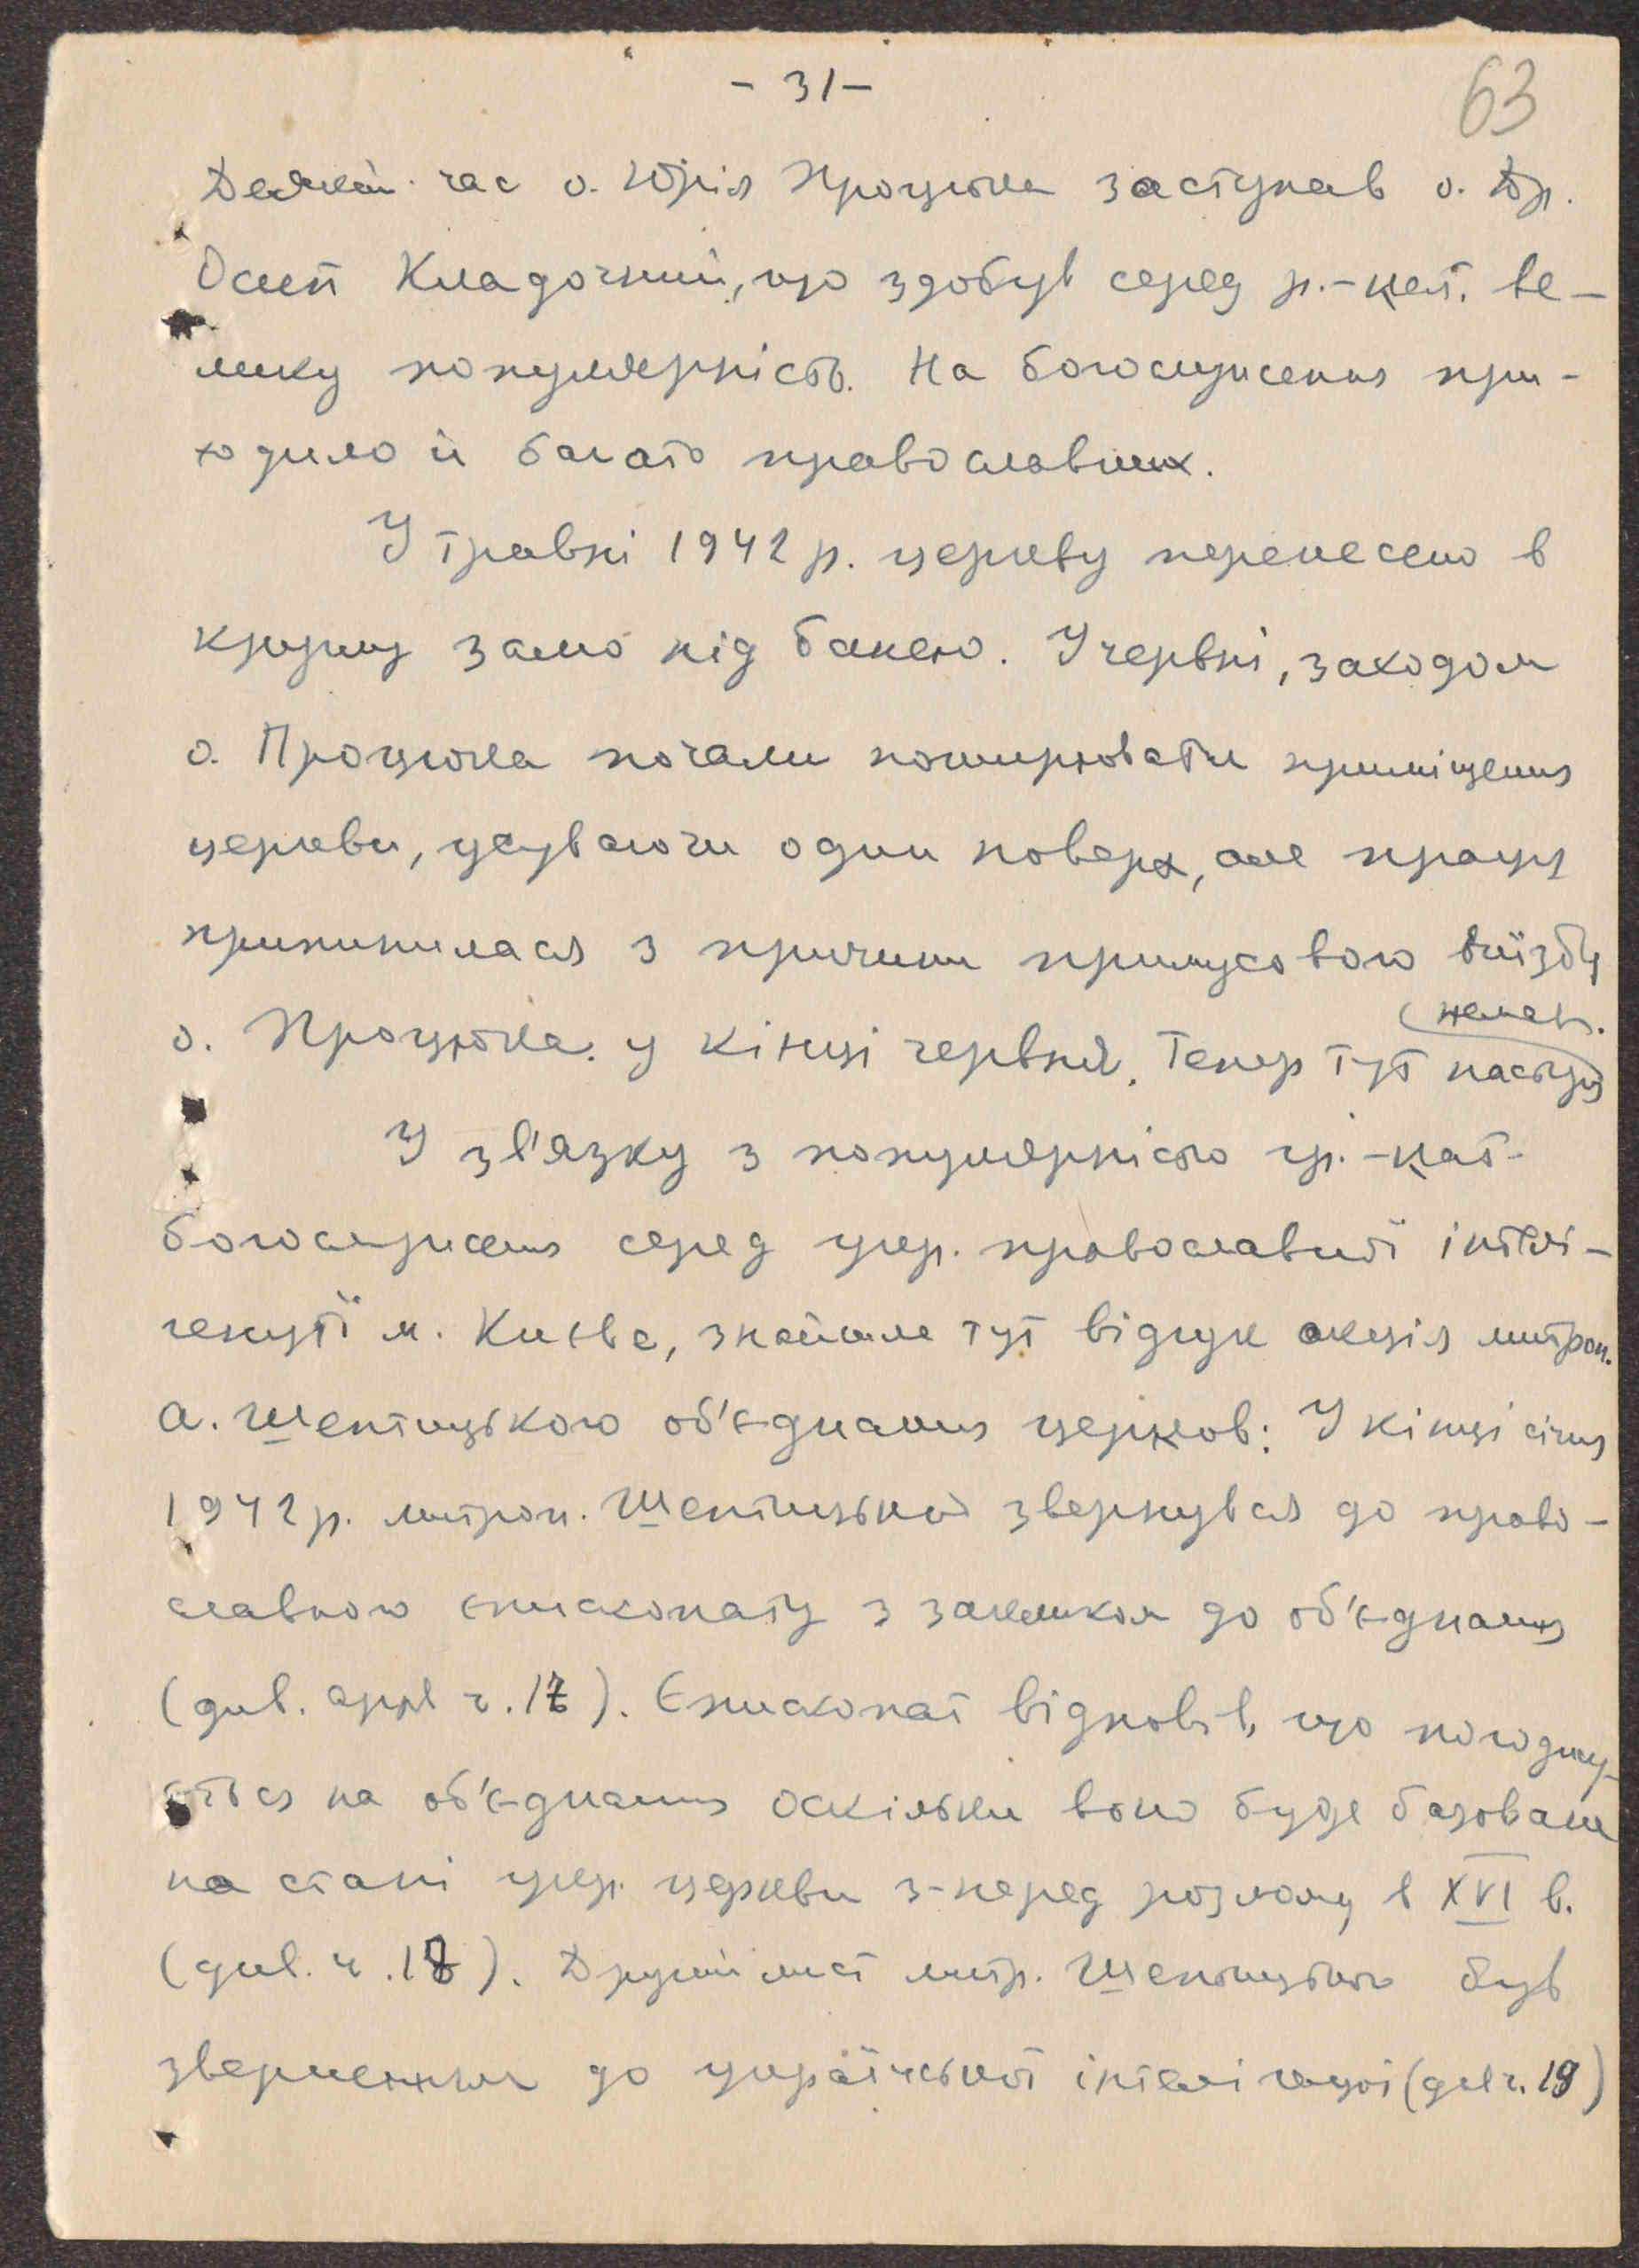 - 31 -
63
Деякий час о. Юрія Процюка заступав о. Др.
Осип Кладочний, що здобув серед р.-кат. ве-
лику популярність. На богослужения при-
ходило й багато православних.
У травні 1942 р. церкву перенесено в
кружну залю під банею. У червні, заходом
о. Процюка почали поширювати приміщення
церкви, усуваючи один поверх, але праця
припинилася з причини примусового виїзду
о. Процюка у кінці червня. Тепер тут
немає
У зв'язку з популярністю гр.-кат.
богослужень серед укр. православної інтелі-
генції м. Києва, знайшла тут відгук акція митроп.
А. Шептицького об'єднання церков: У кінці січня
1942 р. митроп. Шептицький звернувся до право-
славного єпископату з закликом до об'єднання
(див. ч. 17). Єпископат відповів, що погоджу-
ється на об'єднання оскільки воно буде базоване
на стані укр. церкви з-перед розламу в XVI в.
(див. ч. 18). Другий лист митр. Шептицького був
звернений до української інтелігенції (див ч. 19)